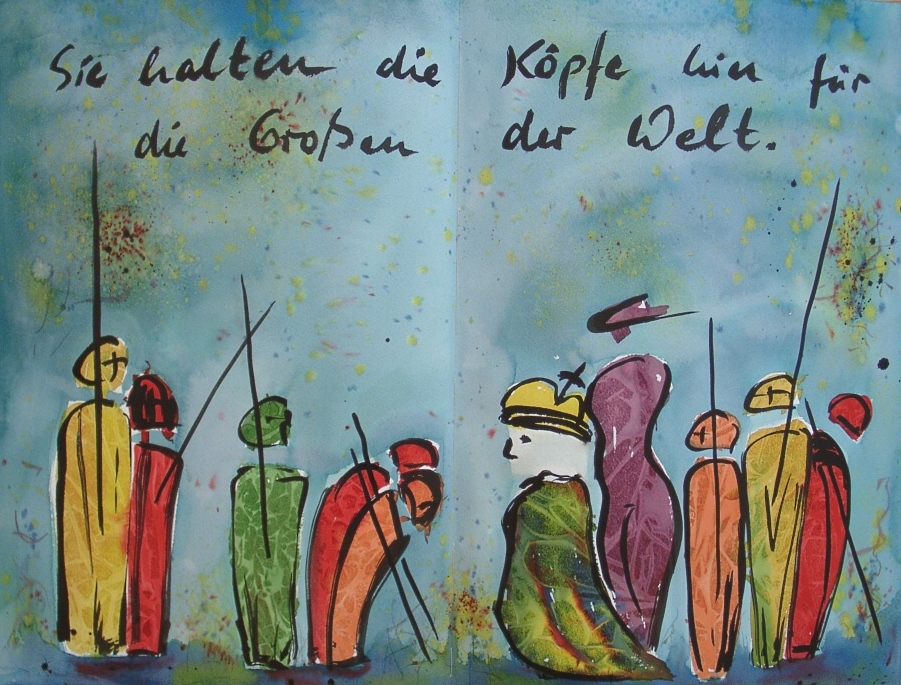 Sie halten die Köpfe hin für
die Großen der Welt.